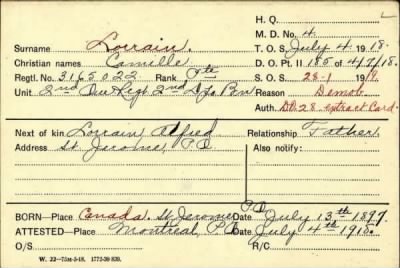 H. Q.
M. D. No. 4
Surname Lorrain.
T. O. S. July 4 1918.
Christian names Camille
D. O. Pt. II 185 of 4/7/18.
Regtl. No. 3165022 Rank Pte
S. O. S. 28-1 19.
Unit 2nd Que Regt 2nd Bn
Reason Demob.
Auth. D.O. 28 extract Card.
Next of kin Lorrain, Alfred
Relationship Father
Address St. Jerome, P.Q.
Also notify:
BORN—Place Canada. St. Jerome P.Q. Date July 13th 1897
ATTESTED—Place Montreal, P.Q. Date July 4th 1918.
O/S
R/C
W. 22—75m-5-18. 1772-39 839.